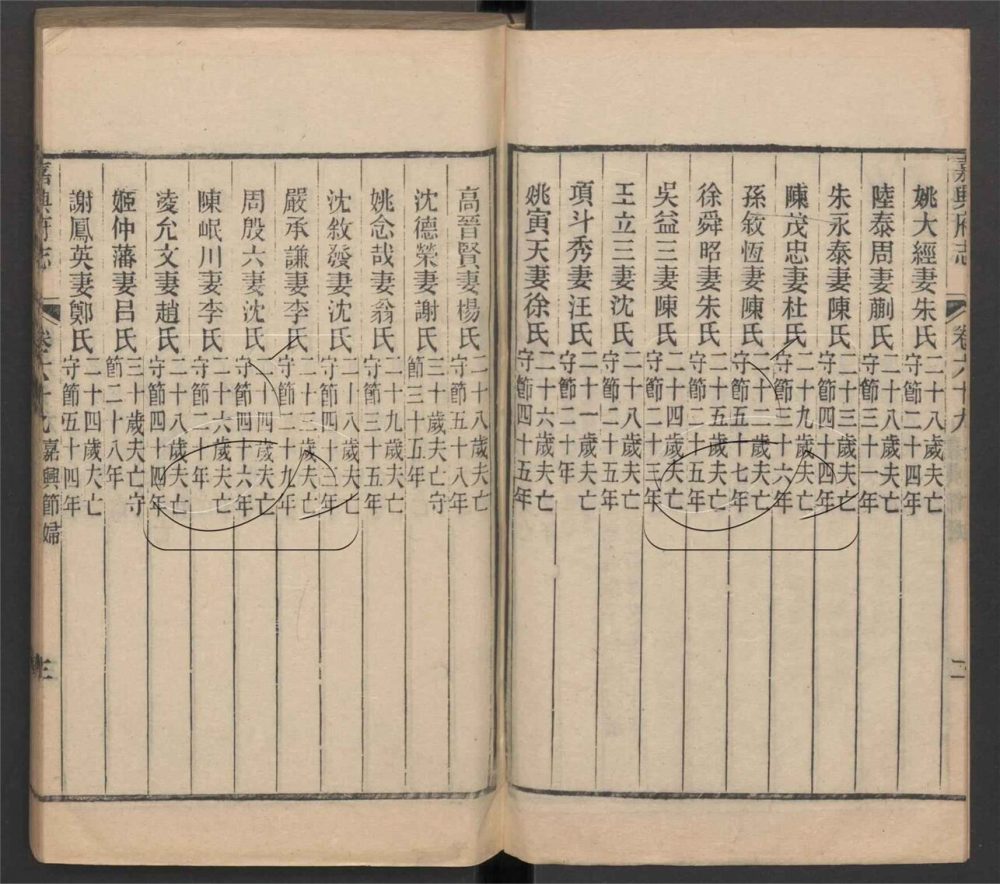 嘉興府志 卷六十九 二
姚大經妻朱氏二十八歲夫亡守節二十四年
陸泰周妻蒯氏二十八歲夫亡守節三十一年
朱永泰妻陳氏二十三歲夫亡守節四十四年
陳茂忠妻杜氏二十九歲夫亡守節三十六年
孫敘恆妻陳氏守節五十七年
徐舜昭妻朱氏二十五歲夫亡守節二十五年
吳益三妻陳氏二十四歲夫亡守節二十三年
王立三妻沈氏二十八歲夫亡守節二十五年
項斗秀妻汪氏二十一歲夫亡守節二十年
姚寅天妻徐氏二十六歲夫亡守節四十五年
高晉賢妻楊氏二十八歲夫亡守節五十八年
沈德榮妻謝氏三十歲夫亡守節三十五年
姚念哉妻翁氏二十九歲夫亡守節三十五年
沈敘發妻沈氏二十八歲夫亡守節四十二年
嚴承謙妻李氏二十三歲夫亡守節二十九年
周殷六妻沈氏二十四歲夫亡守節四十六年
陳岷川妻李氏二十六歲夫亡守節二十年
淩允文妻趙氏二十八歲夫亡守節四十四年
姬仲藩妻呂氏三十歲夫亡守節二十八年
謝鳳英妻鄭氏二十四歲夫亡守節五十四年
嘉興府志 卷六十九 嘉興節婦 三